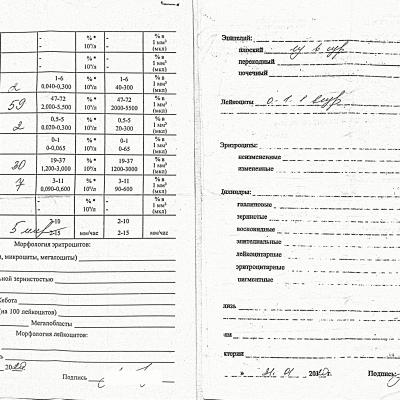 - % * - % в
- 10⁹/л - 1 мм³
(мкл)
- % * - % в
- 10⁹/л - 1 мм³
(мкл)
2 1-6 % * 1-6 % в
0,040-0,300 10⁹/л 40-300 1 мм³
(мкл)
59 47-72 % * 47-72 % в
2,000-5,500 10⁹/л 2000-5500 1 мм³
(мкл)
2 0,5-5 % * 0,5-5 % в
0,020-0,300 10⁹/л 20-300 1 мм³
(мкл)
0-1 % * 0-1 % в
0-0,065 10⁹/л 0-65 1 мм³
(мкл)
30 19-37 % * 19-37 % в
1,200-3,000 10⁹/л 1200-3000 1 мм³
(мкл)
7 3-11 % * 3-11 % в
0,090-0,600 10⁹/л 90-600 1 мм³
(мкл)
- % * - % в
- 10⁹/л - 1 мм³
(мкл)
2-10 2-10
5 мм/ч 2-15 мм/час 2-15 мм/час
Морфология эритроцитов:
, микроциты, мегалоциты)
ьной зернистостью
Кебота
(на 100 лейкоцитов)
Мегалобласты
Морфология лейкоцитов:
20
Подпись
Эпителий:
плоский
переходный
почечный
Лейкоциты 0-1-1
Эритроциты:
неизмененные
измененные
Цилиндры:
гиалиновые
зернистые
восковидные
эпителиальные
лейкоцитарные
эритроцитарные
пигментные
лизь
ли
ктерии
» 21. 01 20 г. Подпись